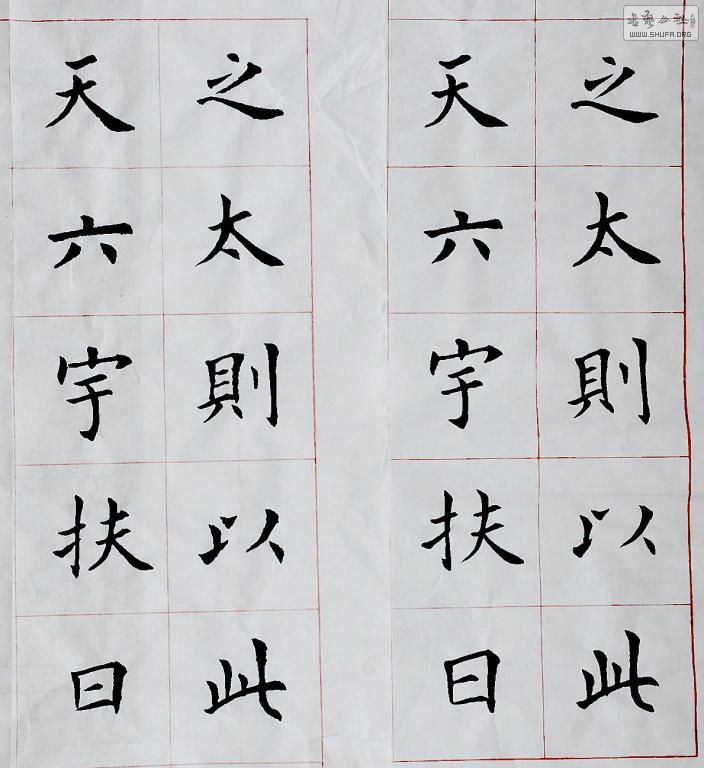 之太則以此
天六宇扶日
之太則以此
天六宇扶日
WWW.SHUFA.ORG